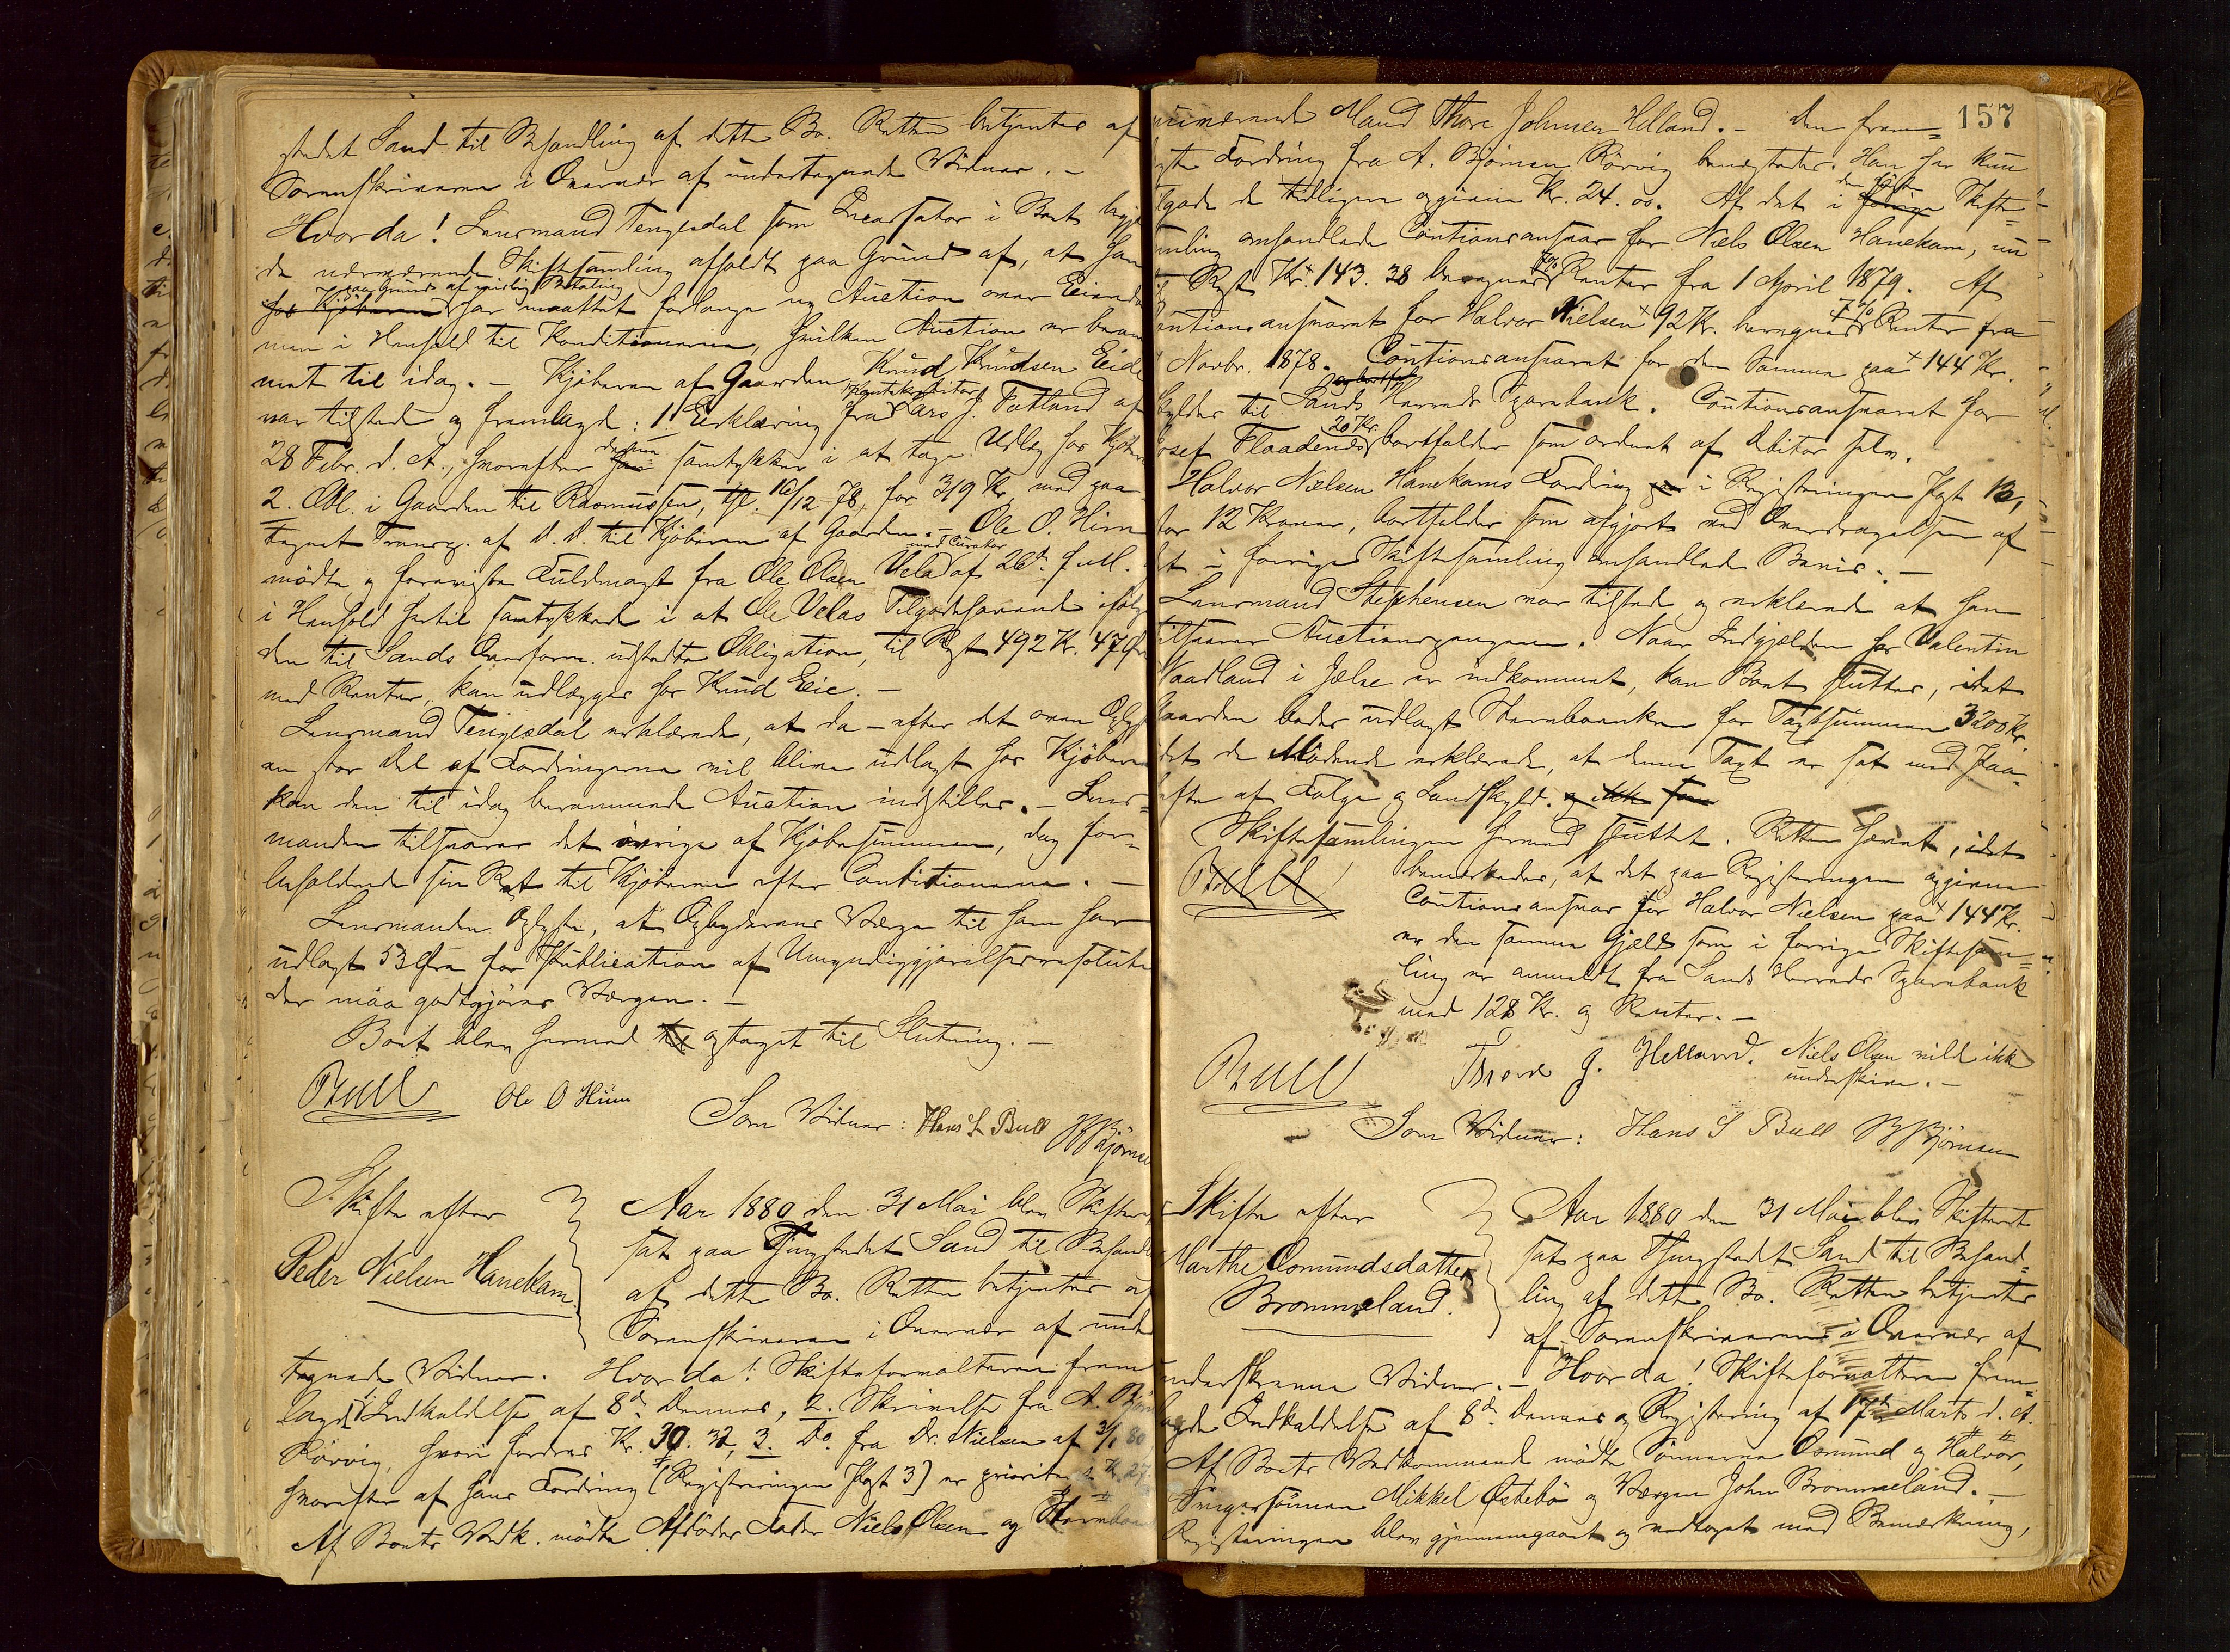 stedet Sand til Behandling af dette Bo. Retten betjentes af
Sorenskriveren i Overvær af undertegnede Vidner. -
Hvorda! Lensmand Tengesdal som Incassator i Boet begjæ
de nærværende Skiftesamling afholdt paa Grund af, at han
paa Grund af uvislig Betaling
hos Kjøberen har maattet forlange ny Auction over Eiendom
men i Henhold til Konditionerne, hvilken Auction er beram
met til idag. - Kjøberen af Gaarden, Knud Knudsen Eide
Pantekreditor
var tilstede og fremlagde: 1. Erklæring fra Lars J. Fatland af
28 Febr. d. A., hvorefter denne samtykker i at tage Udlæg hos Kjøber
2. Obl. i Gaarden til Rasmussen, thl. 10/12 78, for 319 Kr. med paa
tegnet Transp. af D. D. til Kjøberen af Gaarden. - Ole O. Hiim
med Curator
mødte og foreviste Fuldmagt fra Ole Olsen Vela af 26de f. M.
i Henhold hertil samtykkede i at Ole Velas Tilgodehavende ifølge
den til Sands Overform. udstedte Obligation, til Rest 492 Kr. 47 Øre
med Renter, kan udlægges hos Knud Eie. -
Lensmand Tengesdal erklærede, at da - efter det oven Oply
en stor Del af Fordringerne vil blive udlagt hos Kjøberen
kan den til idag berammede Auction indstilles. - Lens-
manden tilsvarer det øvrige af Kjøbesummen, dog for-
beholdende sin Ret til Kjøberen efter Conditionerne. -
Lensmanden oplyste, at Opbyderens Værge til ham har
udlagt 53 Øre for Publication af Umyndiggjørelsesresolution
der maa godtgjøres Værgen. -
Boet blev hermed til optaget til Slutning. -
Bull Ole O Hiim Som Vidner: Hans S Bull B Bjørnsen
Skifte efter
Peder Nielsen Hanekam.
Aar 1880 den 31 Mai blev Skifteret
sat paa Thingstedet Sand til Behandl
af dette Bo. Retten betjentes af
Sorenskriveren i Overvær af under
tegnede Vidner. Hvor da! Skifteforvalteren frem
lagde 1. Indkaldelse af 8de Dennes, 2. Skrivelse fra A. Bjør
Rørvig, hvori fordres Kr. 30. 32, 3. Do. fra Dr. Nielsen af 3/1 80
hvorefter af hans Fordring (Registreringen Post 3) er prioriteret Kr. 27.
Af Boets Vedk. mødte Afdødes Fader Niels Olsen og Stervbo
157
nærværende Mand Thore Johnsen Helland. - Den frem-
lagte Fordring fra A. Bjørnsen Rørvig benegtedes. Han har kun
tilgode de tidligere opgivne Kr. 24. 00. Af det i den første forrige Skifte-
samling omhandlede Cautionsansvar for Niels Olsen Hanekam, nu
til Rest Kr. 143. 38 beregnes 7% Renter fra 1 April 1879. Af
Cautionsansvaret for Halvor Nielsen 92 Kr. beregnes 7% Renter fra
Novbr. 1878. Cautionsansvaret for den Samme paa 144 Kr.
og bortfald
skyldes til Sands Herreds Sparebank. Cautionsansvaret for
20 Kr.
Josef Flaadenes bortfalder som ordnet af Debitor selv.
Halvor Nielsen Hanekams Fordring i Registreringen Post 12,
for 12 Kroner, bortfalder som afgjort ved Overdragelsen af
det i forrige Skiftesamling omhandlede Bevis. -
Lensmand Stephensen var tilstede og erklærede at han
tilsvarer Auctionspengene. Naar Indgjælden hos Valentin
Vaadland i Jælse er indkommet, kan Boet sluttes, idet
Gaarden bedes udlagt Stervboenken for Taxtsummen 3200 Kr.
idet de Mødende erklærede, at denne Taxt er sat med Paa-
hefte af Følge og Landskyld. og ikke som
Skiftesamlingen hermed sluttet. Retten hævet, idet
Bull bemærkedes, at det paa Registreringen opgivne
Cautionsansvar for Halvor Nielsen paa 144 Kr.
er den samme Gjæld som i forrige Skiftesam-
ling er anmeldt fra Sands Herreds Sparebank
med 128 Kr. og Renter. -
Bull Thore J. Helland. Niels Olsen vilde ikke
underskrive. -
Som Vidner: Hans S Bull B Bjørnsen
Skifte efter
Marthe Osmundsdatter
Brommeland.
Aar 1880 den 31 Mai blev Skifteret
sat paa Thingstedet Sand til Behand-
ling af dette Bo. Retten betjentes
af Sorenskriveren i Overvær af
underskrevne Vidner. - Hvor da! Skifteforvalteren frem-
lagde Indkaldelse af 8de Dennes og Registrering af 17de Marts d. A.
Af Boets Vedkommende mødte Sønnerne Osmund og Halvor,
Svigersønnen Mikkel Østebø og Værgen John Brommeland. -
Registreringen blev gjennemgaaet og vedtaget med Bemærkning,